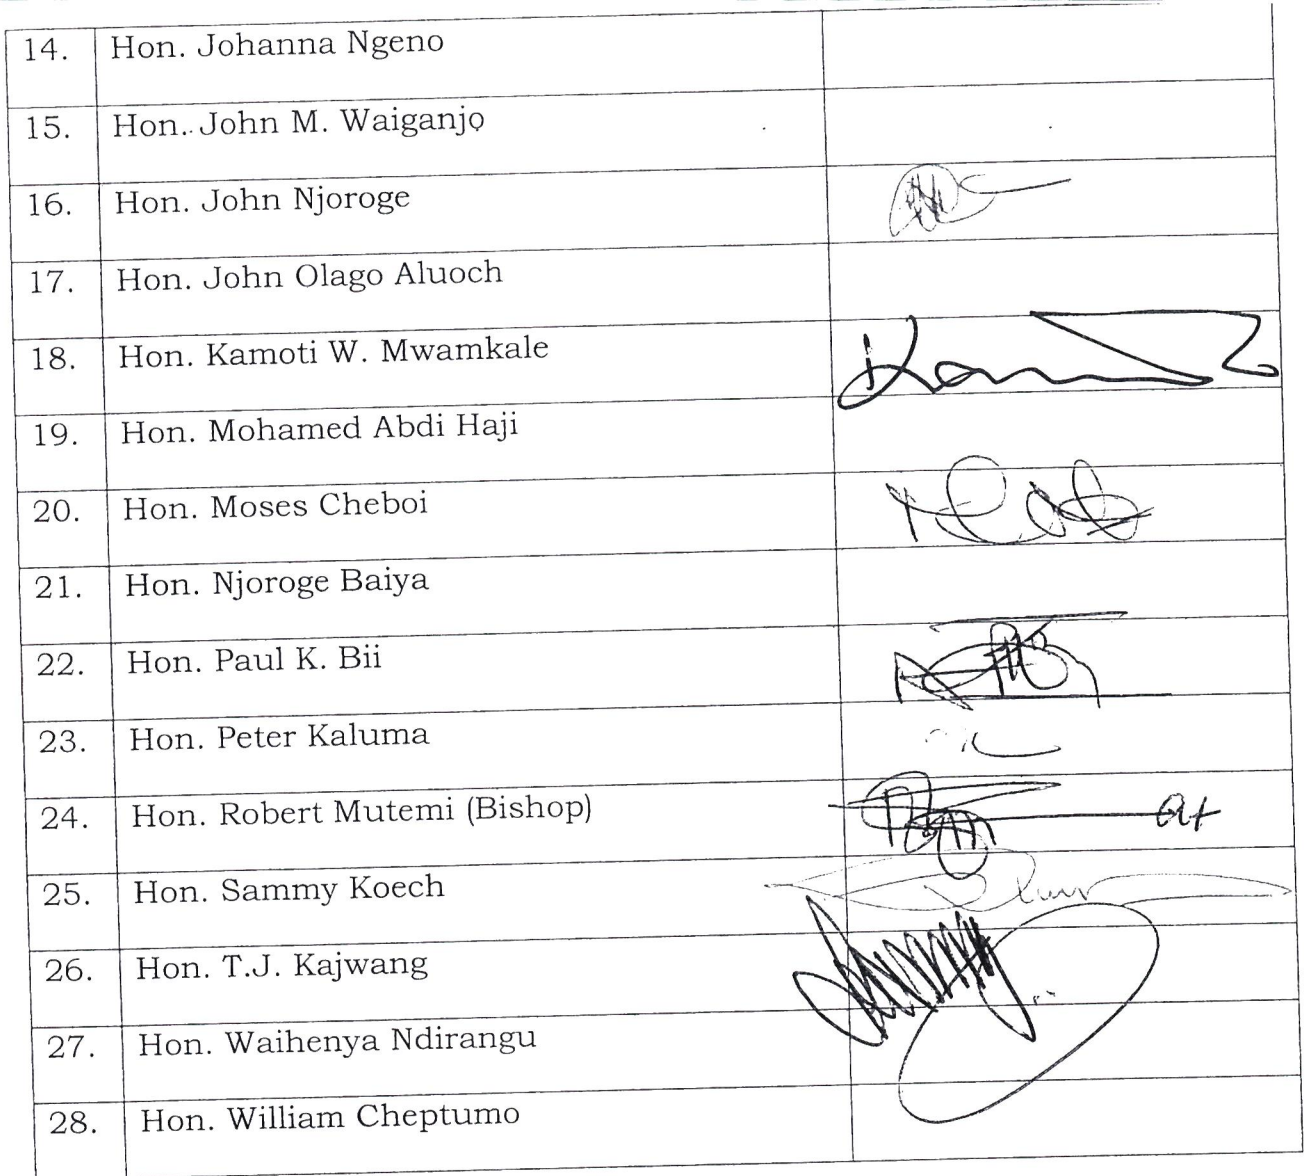 14. Hon. Johanna Ngeno
15. Hon. John M. Waiganjo
16. Hon. John Njoroge
17. Hon. John Olago Aluoch
18. Hon. Kamoti W. Mwamkale
19. Hon. Mohamed Abdi Haji
20. Hon. Moses Cheboi
21. Hon. Njoroge Baiya
22. Hon. Paul K. Bii
23. Hon. Peter Kaluma
24. Hon. Robert Mutemi (Bishop)
25. Hon. Sammy Koech
26. Hon. T.J. Kajwang
27. Hon. Waihenya Ndirangu
28. Hon. William Cheptumo